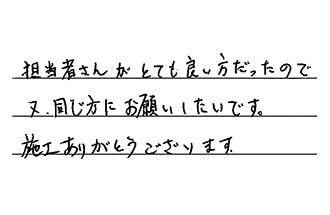 担当者さんがとても良い方だったので
又、同じ方にお願いしたいです。
施工ありがとうございます